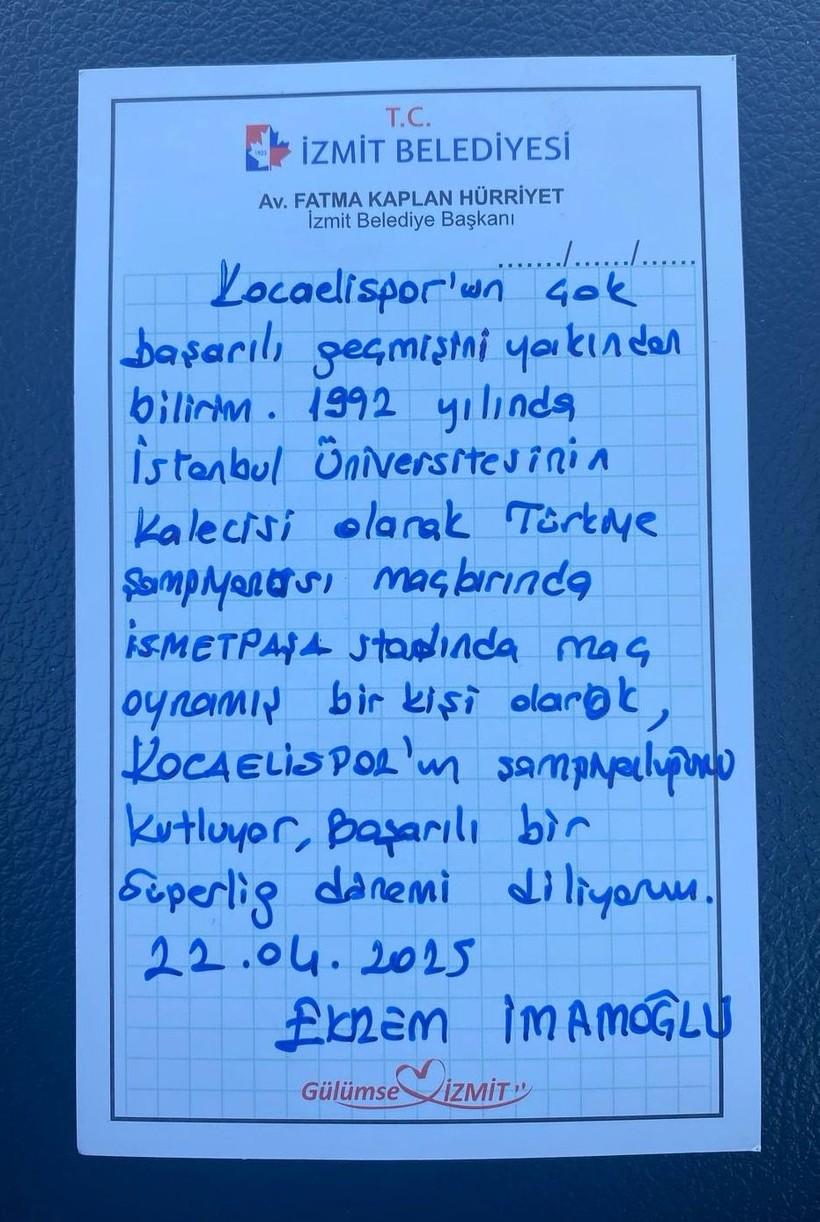 T.C.
1923
İZMİT BELEDİYESİ
Av. FATMA KAPLAN HÜRRİYET
İzmit Belediye Başkanı
......./....../......
Kocaelispor'un çok
başarılı geçmişini yakından
bilirim. 1992 yılında
İstanbul Üniversitesinin
Kalecisi olarak Türkiye
Şampiyonası maçlarında
İSMETPAŞA stadında maç
oynamış bir kişi olarak,
KOCAELİSPOR'un şampiyonluğunu
kutluyor, Başarılı bir
Süperlig dönemi diliyorum.
22.04.2025
EKREM İMAMOĞLU
Gülümse İZMİT